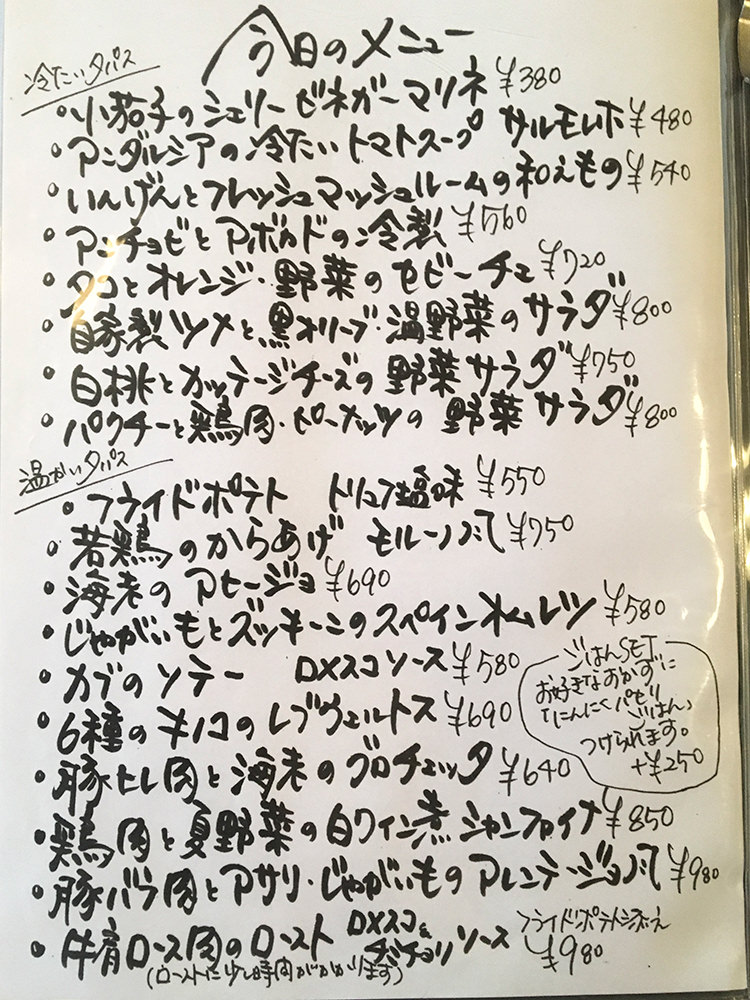 今日のメニュー
冷たいタパス
・小茄子のシェリービネガーマリネ ¥380
・アンダルシアの冷たいトマトスープ サルモレホ ¥480
・いんげんとフレッシュマッシュルームの和えもの ¥540
・アンチョビとアボカドの冷製 ¥560
・タコとオレンジ・野菜のセビーチェ ¥720
・自家製ツナと黒オリーブ・温野菜のサラダ ¥800
・白桃とカッテージチーズの野菜サラダ ¥750
・パクチーと鶏肉・ピーナッツの野菜サラダ ¥800
温かいタパス
・フライドポテト トリュフ塩味 ¥550
・若鶏のからあげ モルーノ風 ¥750
・海老のアヒージョ ¥690
・じゃがいもとズッキーニのスペインオムレツ ¥580
・カブのソテー ロメスコソース ¥580
・6種のキノコのレブエルトス ¥690
・豚ヒレ肉と海老のブロチェッタ ¥640
・鶏肉と夏野菜の白ワイン煮 シャンファイナ ¥850
・豚バラ肉とアサリ・じゃがいものアレンテージョ風 ¥980
・牛肩ロース肉のロースト ロメスコ& チミチョリソース フライドポテト添え ¥980
(ローストに少し時間がかかります)
ごはんSET
お好きなおかずに
「にんにくパセリ
ごはん」
つけられます。
+¥250